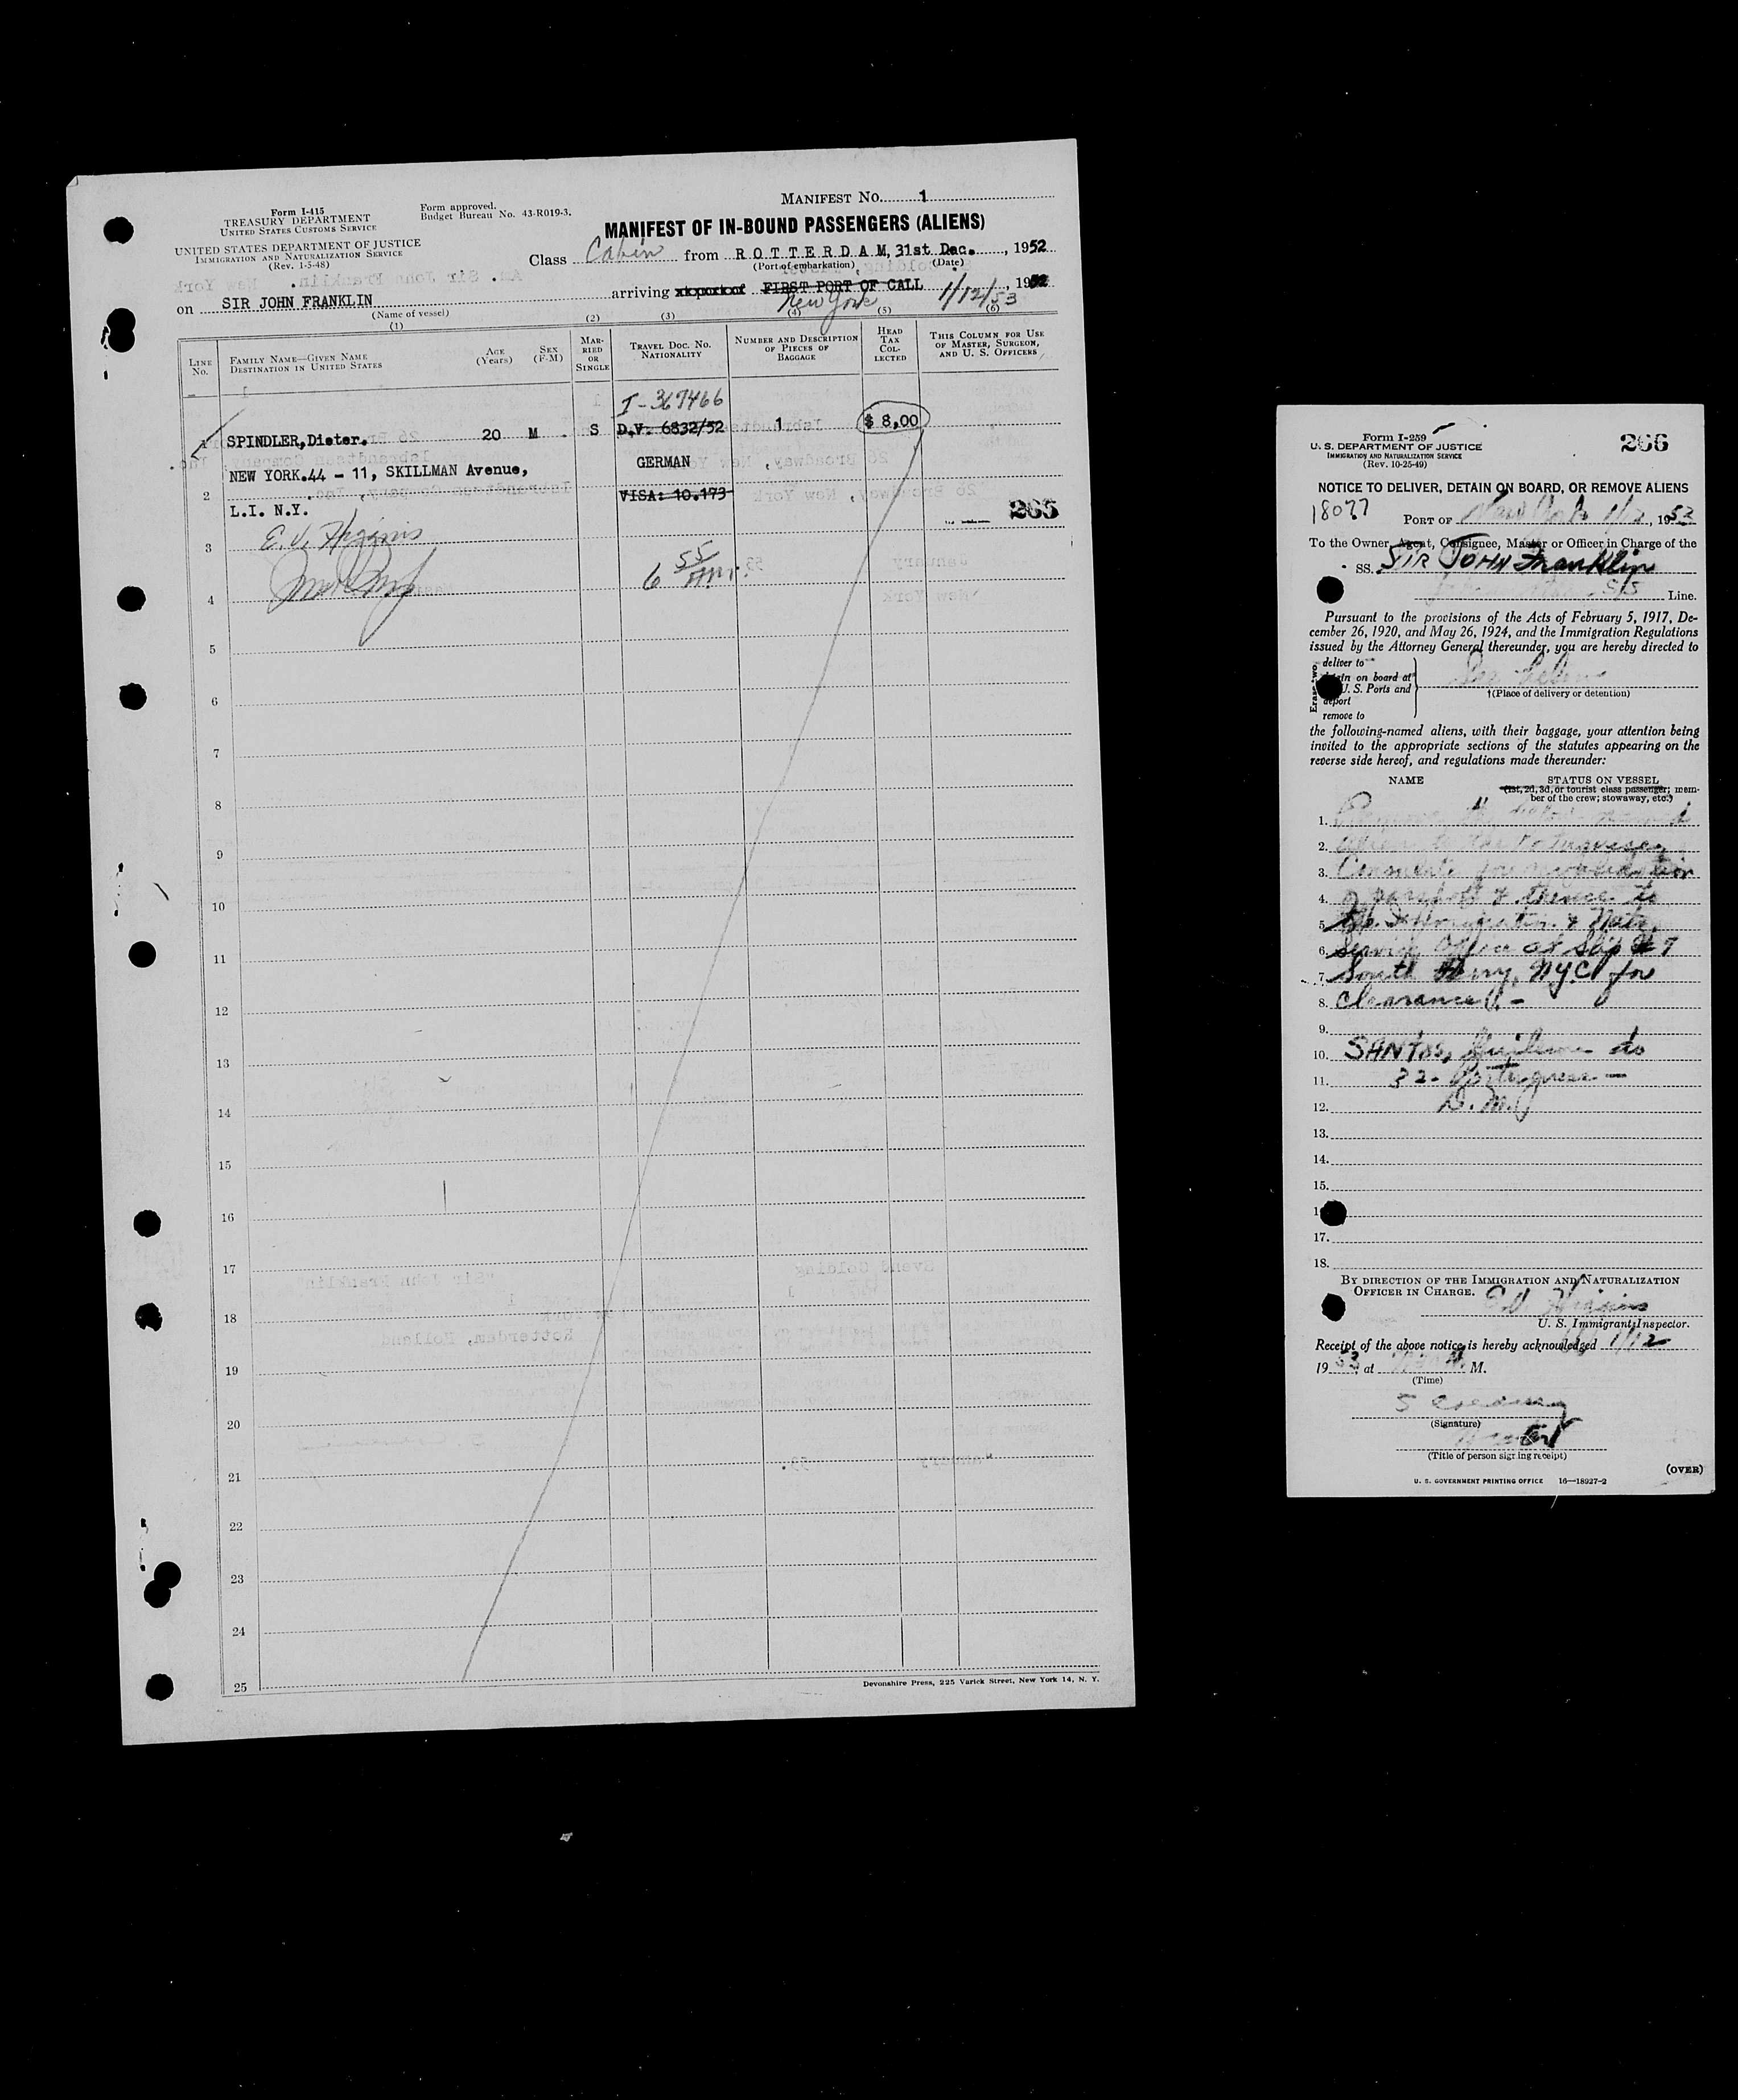 Form I-415
TREASURY DEPARTMENT
UNITED STATES CUSTOMS SERVICE
UNITED STATES DEPARTMENT OF JUSTICE
IMMIGRATION AND NATURALIZATION SERVICE
(Rev. 1-5-48)
Form approved.
Budget Bureau No. 43-R019-3.
MANIFEST NO. 1
MANIFEST OF IN-BOUND PASSENGERS (ALIENS)
Class Cabin from ROTTERDAM, 31st Dec., 1952
(Port of embarkation) (Date)
on SIR JOHN FRANKLIN arriving FIRST PORT OF CALL, 19
New York 1/12/53
(Name of vessel)
(1) (2) (3) (4) (5) (6)
LINE NO.
FAMILY NAME—GIVEN NAME
DESTINATION IN UNITED STATES
AGE (YEARS)
SEX (F-M)
MARRIED OR SINGLE
TRAVEL DOC. NO.
NATIONALITY
NUMBER AND DESCRIPTION OF PIECES OF BAGGAGE
HEAD TAX COLLECTED
THIS COLUMN FOR USE OF MASTER, SURGEON, AND U. S. OFFICERS
I-367466
1 SPINDLER, Dieter. 20 M S D.V. 6832/52 1 $ 8,00
NEW YORK.44 - 11, SKILLMAN Avenue, GERMAN
2 VISA: 10.173
L.I. N.Y. 265
E. V. Higgins
3
6 55 AM.
4
5
6
7
8
9
10
11
12
13
14
15
16
17
18
19
20
21
22
23
24
25
Devonshire Press, 225 Varick Street, New York 14, N. Y.
Form I-259
U. S. DEPARTMENT OF JUSTICE
IMMIGRATION AND NATURALIZATION SERVICE
(Rev. 10-25-49)
266
NOTICE TO DELIVER, DETAIN ON BOARD, OR REMOVE ALIENS
18077
PORT OF New York 1/12, 1953
To the Owner, Agent, Consignee, Master or Officer in Charge of the
SS. SIR JOHN Franklin
Line.
Pursuant to the provisions of the Acts of February 5, 1917, De-
cember 26, 1920, and May 26, 1924, and the Immigration Regulations
issued by the Attorney General thereunder, you are hereby directed to
deliver to
on board at
U. S. Ports and
deport
remove to
†(Place of delivery or detention)
the following-named aliens, with their baggage, your attention being
invited to the appropriate sections of the statutes appearing on the
reverse side hereof, and regulations made thereunder:
NAME STATUS ON VESSEL
(1st, 2d, 3d, or tourist class passenger; mem-
ber of the crew; stowaway, etc.)
1.
2. alien to the Portuguese
3. Consulate for
4. passport & thence to
5. Immigration & Natz.
6. Service Office at Slip #7
7. South Ferry, NYC for
8. Clearance. -
9.
10. SANTOS, do
11. 32 - Portuguese -
12.
13.
14.
15.
17.
18.
BY DIRECTION OF THE IMMIGRATION AND NATURALIZATION
OFFICER IN CHARGE. E.V. Higgins
U. S. Immigrant Inspector.
Receipt of the above notice is hereby acknowledged 1/12
1953, at M.
(Time)
(Signature)
Master
(Title of person signing receipt)
(OVER)
U. S. GOVERNMENT PRINTING OFFICE 16—18927-2